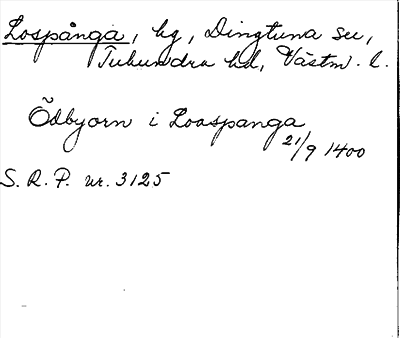 Lospånga, hg, Dingtuna sn,
Tuhundra hd, Västm. l.
Ödbyorn i Loaspanga
21/9 1400
S. R. P. nr. 3125